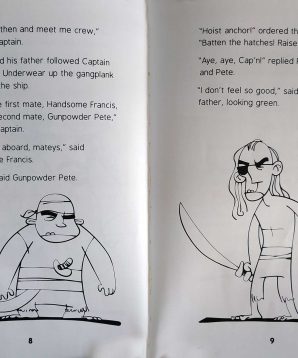 then and meet my crew,"
aptain.
d his father followed Captain
Underwear up the gangplank
the ship.
e first mate, Handsome Francis,
econd mate, Gunpowder Pete,"
aptain.
aboard, mateys," said
e Francis.
aid Gunpowder Pete.
8
"Hoist anchor!" ordered th
"Batten the hatches! Raise
"Aye, aye, Cap'n!" replied F
and Pete.
"I don't feel so good," said
father, looking green.
9